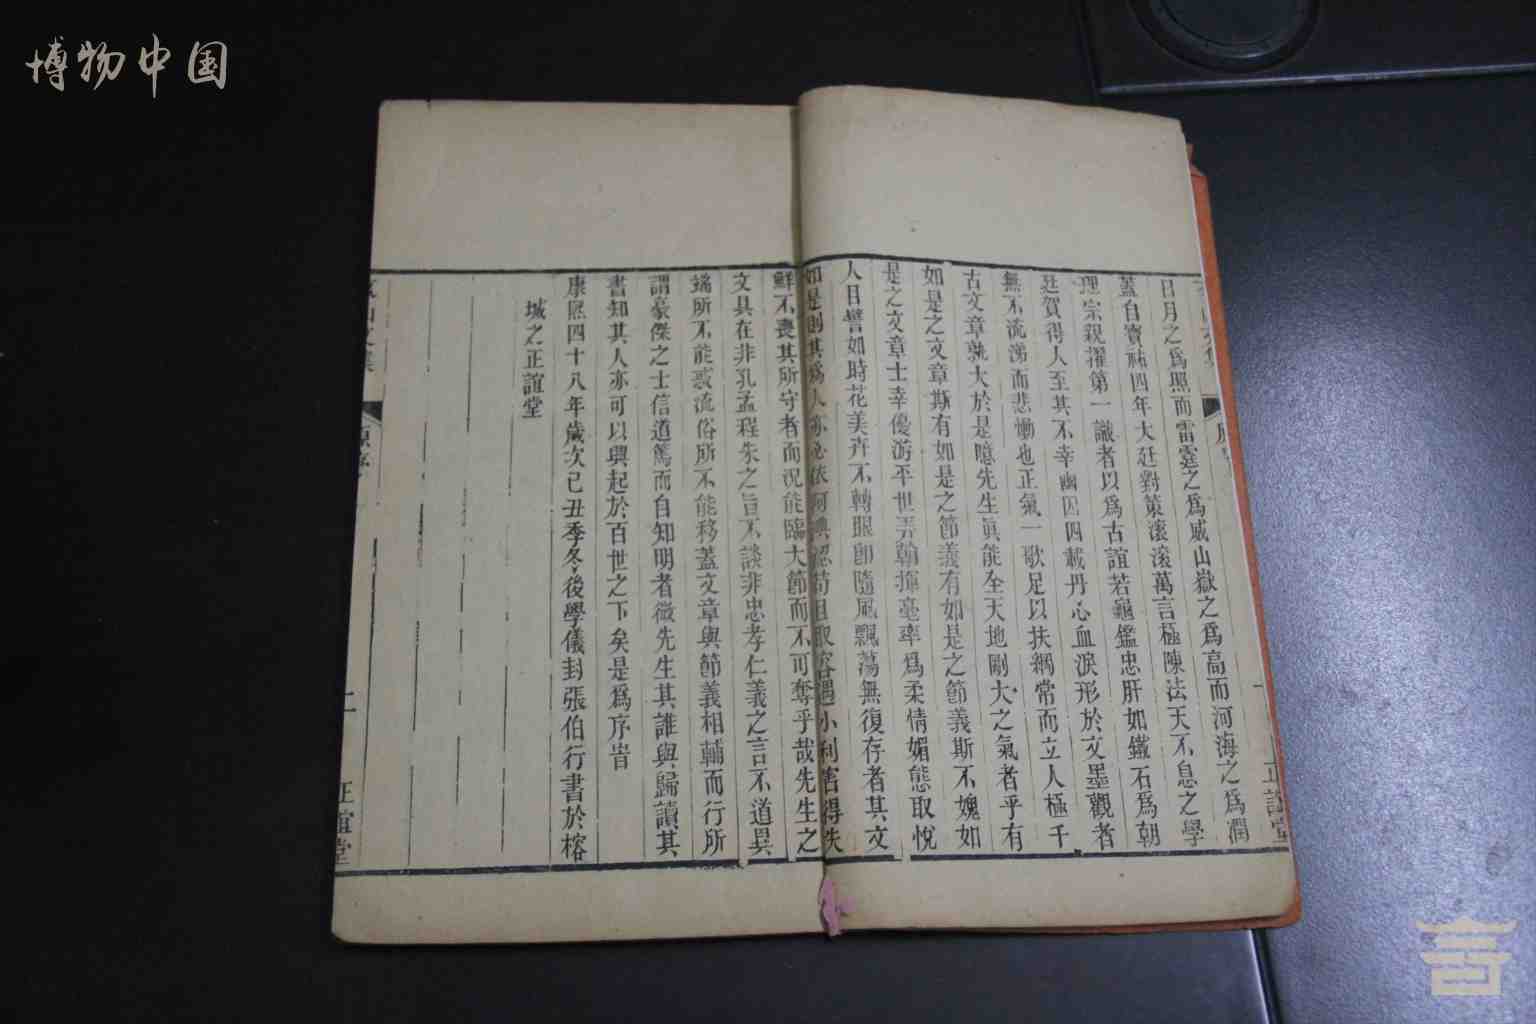 博物中国
日月之爲照而雷霆之爲威山嶽之爲高而河海之爲潤
蓋自寶祐四年大廷對策滚滚萬言極陳法天不息之學
理宗親擢第一識者以爲古誼若龜鑑忠肝如鐵石爲朝
廷賀得人至其不幸幽囚四載丹心血淚形於文墨觀者
無不流涕而悲慟也正氣一歌足以扶綱常而立人極千
古文章孰大於是噫先生眞能全天地剛大之氣者乎有
如是之文章斯有如是之節義有如是之節義斯不媿如
是之文章士幸優游平世弄翰揮毫率爲柔情媚態取悅
人目譬如時花美卉不轉眼卽隨風飄蕩無復存者其文
如是則其爲人亦必依阿淟涊苟且取容遇小利害得失
鮮不喪其所守者而況能臨大節而不可奪乎哉先生之
文具在非孔孟程朱之旨不談非忠孝仁義之言不道異
端所不能惑流俗所不能移蓋文章與節義相輔而行所
謂豪傑之士信道篤而自知明者微先生其誰與歸讀其
書知其人亦可以興起於百世之下矣是爲序旹
康熙四十八年歲次己丑季冬後學儀封張伯行書於榕
城之正誼堂
二
正誼堂